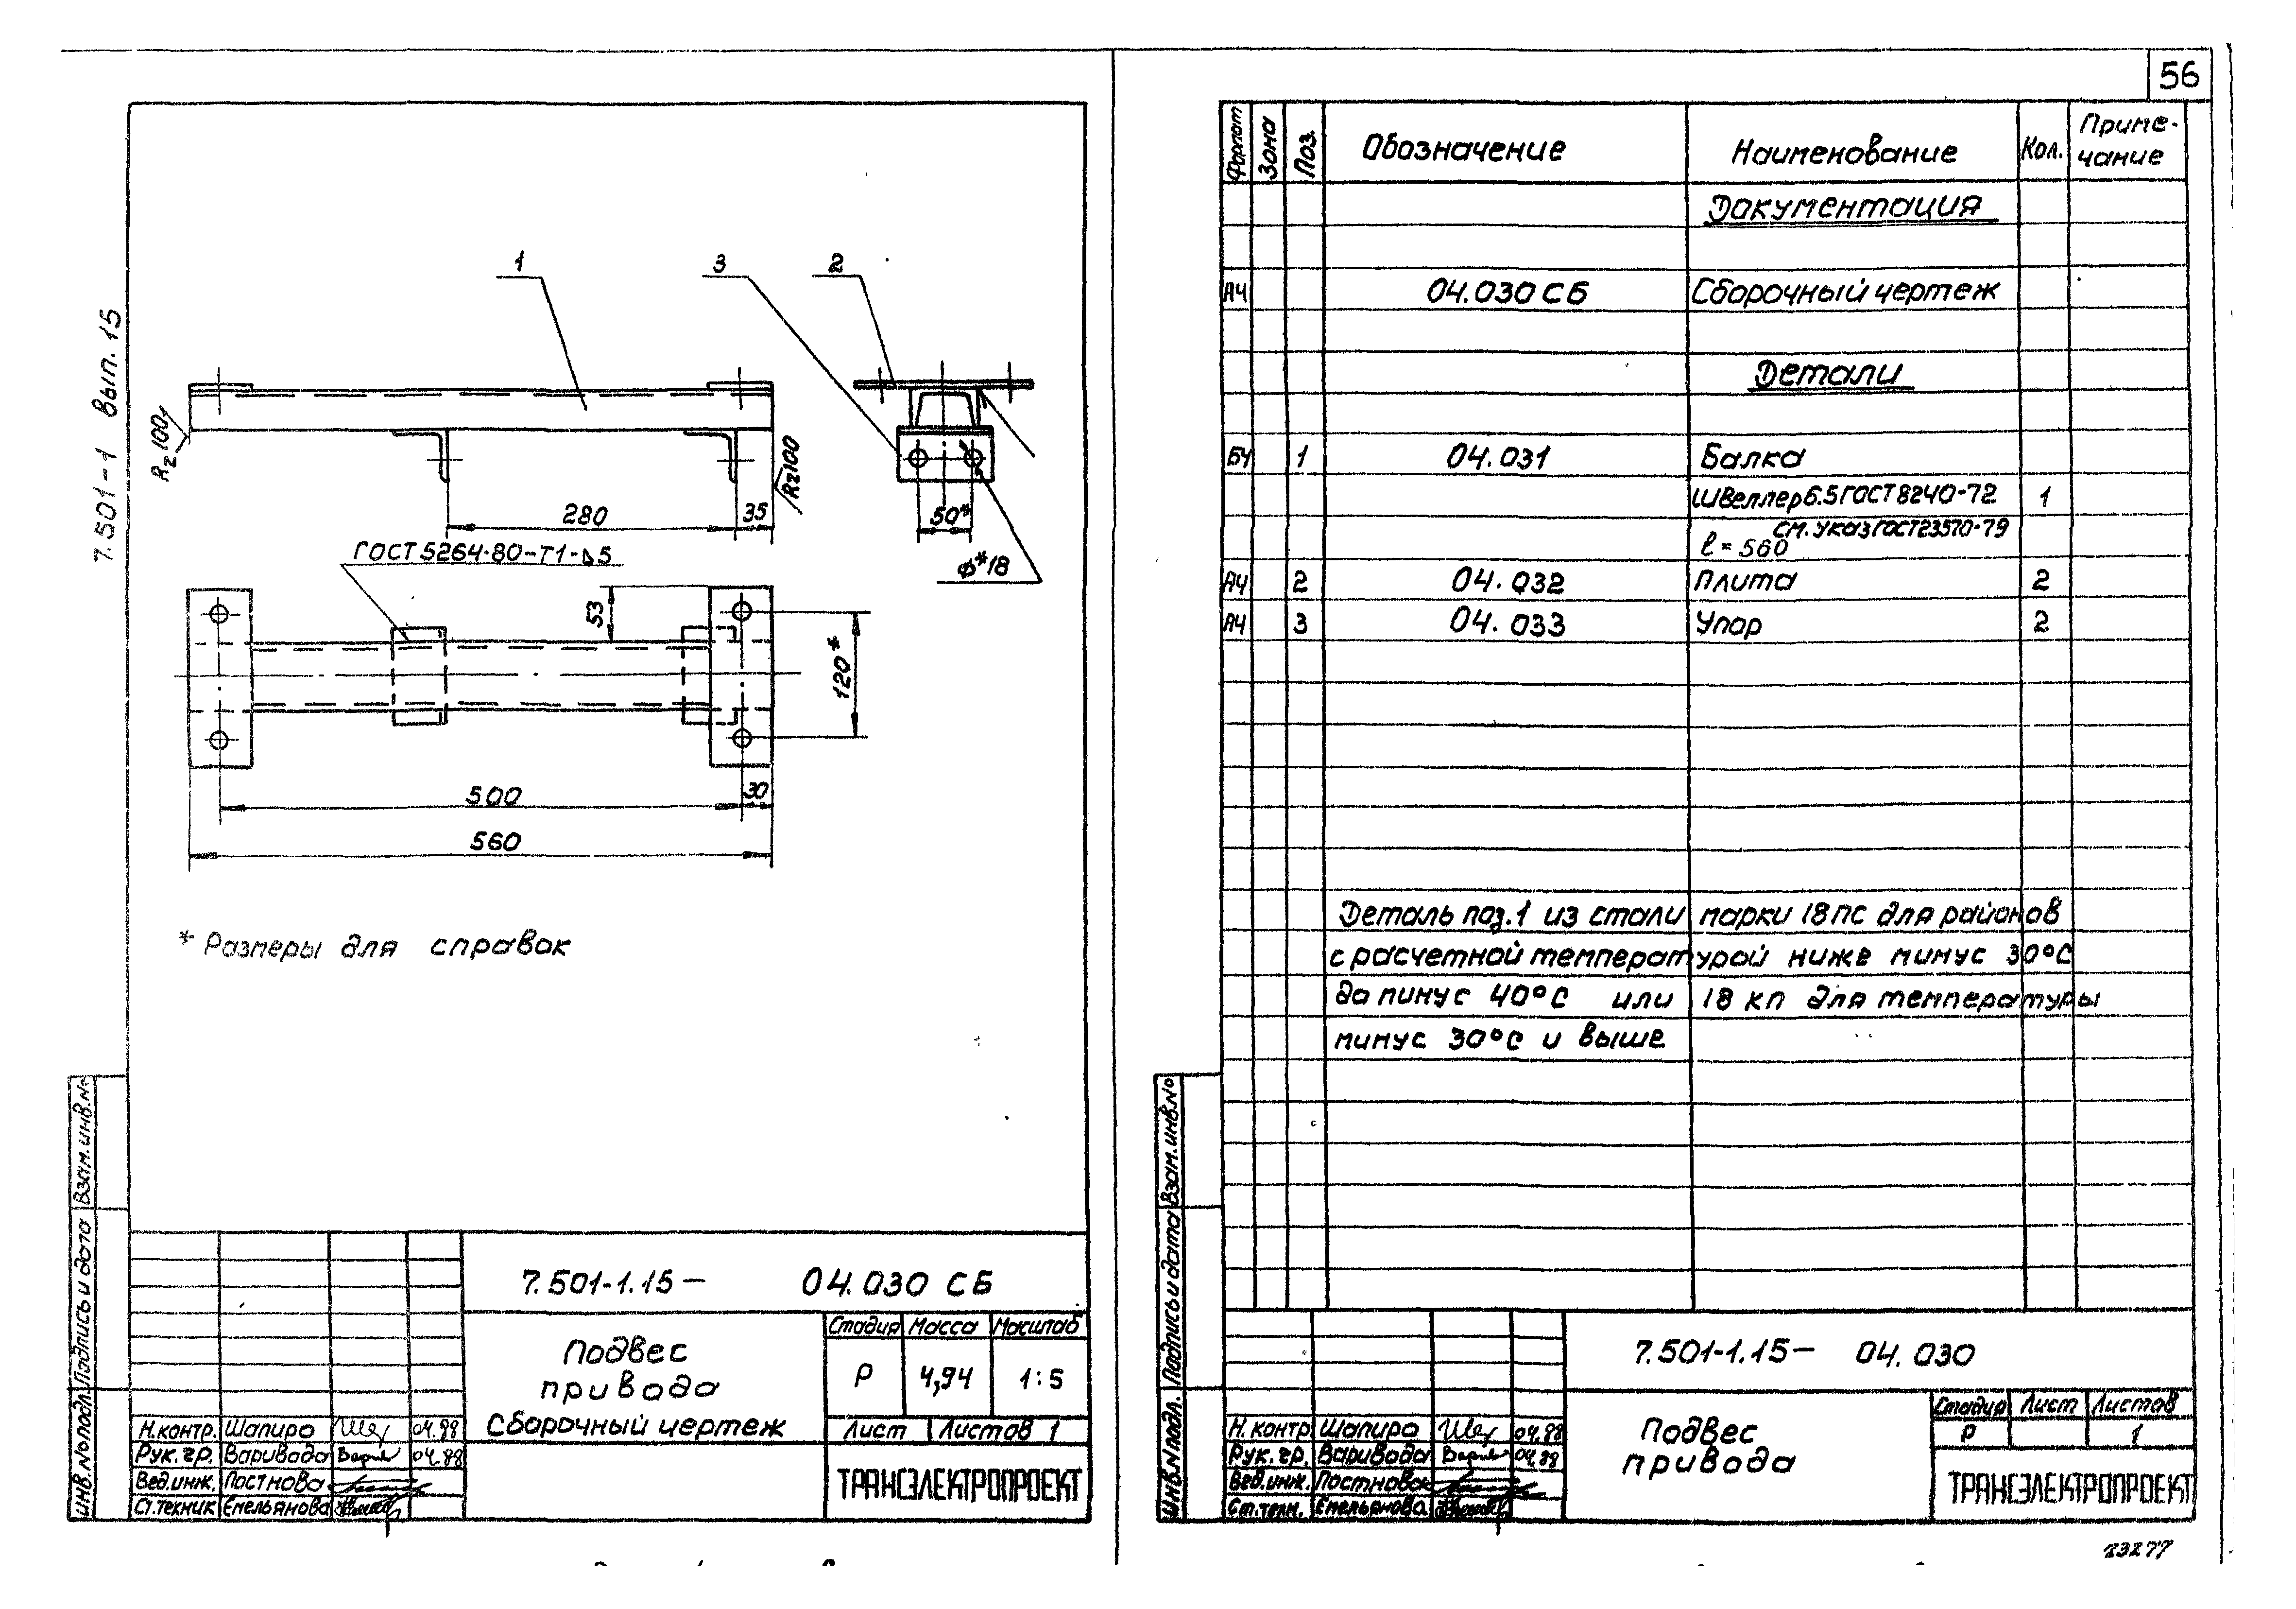 56
7.501-1 Вып. 15
1
3
2
Rz 100
Rz 100
280
35
50*
ø*18
ГОСТ 5264-80-Т1-⊿5
53
120*
500
30
560
* Размеры для справок
Взам. инв. №
Подпись и дата
Инв. № подл.
7.501-1.15- 04.030 СБ
Подвес
привода
Сборочный чертеж
Стадия Масса Масштаб
Р 4,94 1:5
Лист Листов 1
ТРАНСЭЛЕКТРОПРОЕКТ
Н.контр. Шапиро 04.88
Рук. гр. Варивода 04.88
Вед.инж. Постнова
Ст.техник Емельянова
Формат Зона Поз. Обозначение Наименование Кол. Приме-
чание
Документация
А4 04.030 СБ Сборочный чертеж
Детали
БЧ 1 04.031 Балка
Швеллер 6.5 ГОСТ 8240-72 1
см. указ ГОСТ 23570-79
ℓ = 560
А4 2 04.032 Плита 2
А4 3 04.033 Упор 2
Деталь поз.1 из стали марки 18пс для районов
с расчетной температурой ниже минус 30°С
до минус 40°С или 18 кп для температуры
минус 30°С и выше
Взам. инв. №
Подпись и дата
Инв. № подл.
7.501-1.15- 04.030
Подвес
привода
Стадия Лист Листов
Р 1
ТРАНСЭЛЕКТРОПРОЕКТ
Н. контр Шапиро 04.88
Рук. гр. Варивода 04.88
Вед.инж. Постнова
Ст.техн. Емельянова
23277